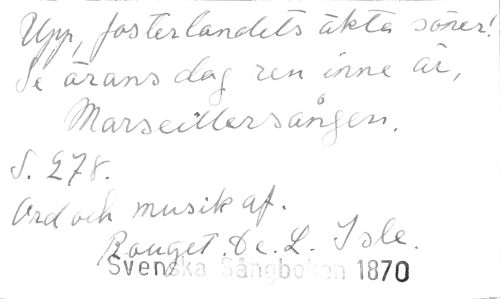 Upp, fosterlandets äkta söner!
Se ärans dag ren inne är,
Marseillersången.
S. 278.
Ord och musik af.
Rouget. De. L. Isle.
Svenska Sångboken 1870